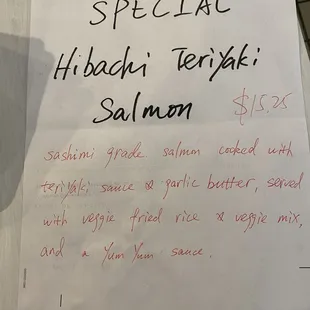 SPECIAL
Hibachi Teriyaki
Salmon
$15.25
sashimi grade salmon cooked with
teriyaki sauce & garlic butter, served
with veggie fried rice & veggie mix,
and a Yum Yum sauce.